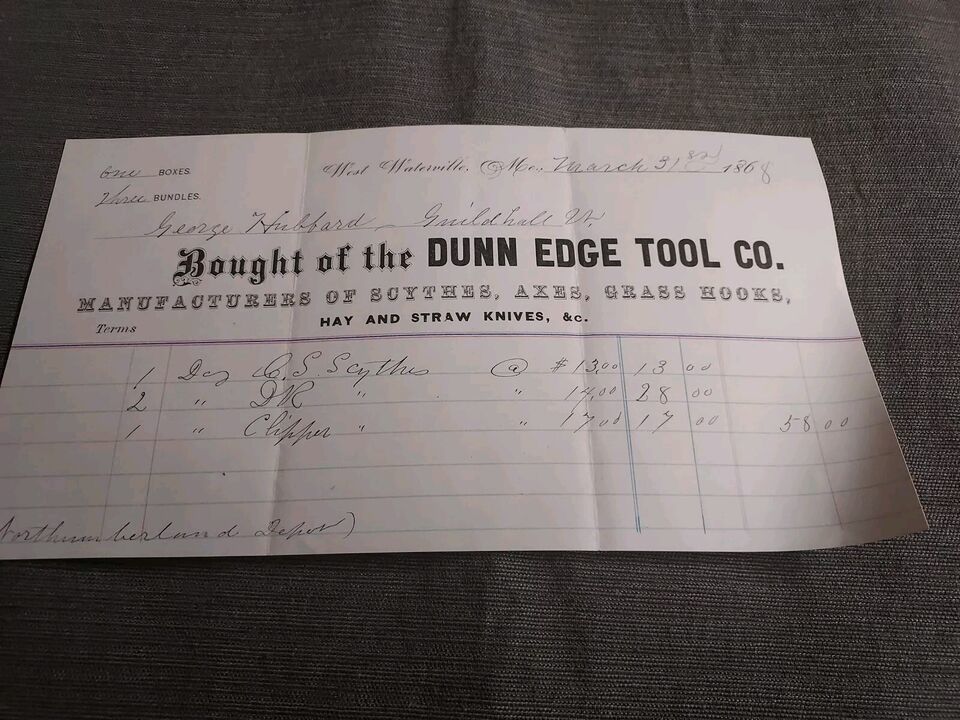 one BOXES.
West Waterville, Me., March 31st 1868
Three BUNDLES.
George Hubbard - Guildhall Vt.
Bought of the DUNN EDGE TOOL CO.
MANUFACTURERS OF SCYTHES, AXES, GRASS HOOKS,
HAY AND STRAW KNIVES, &c.
Terms
1 Doz C.S. Scythes @ $13.00 13 00
2 " " " 14.00 28 00
1 " Clipper " " 17.00 17 00 58 00
Northumberland Depot)